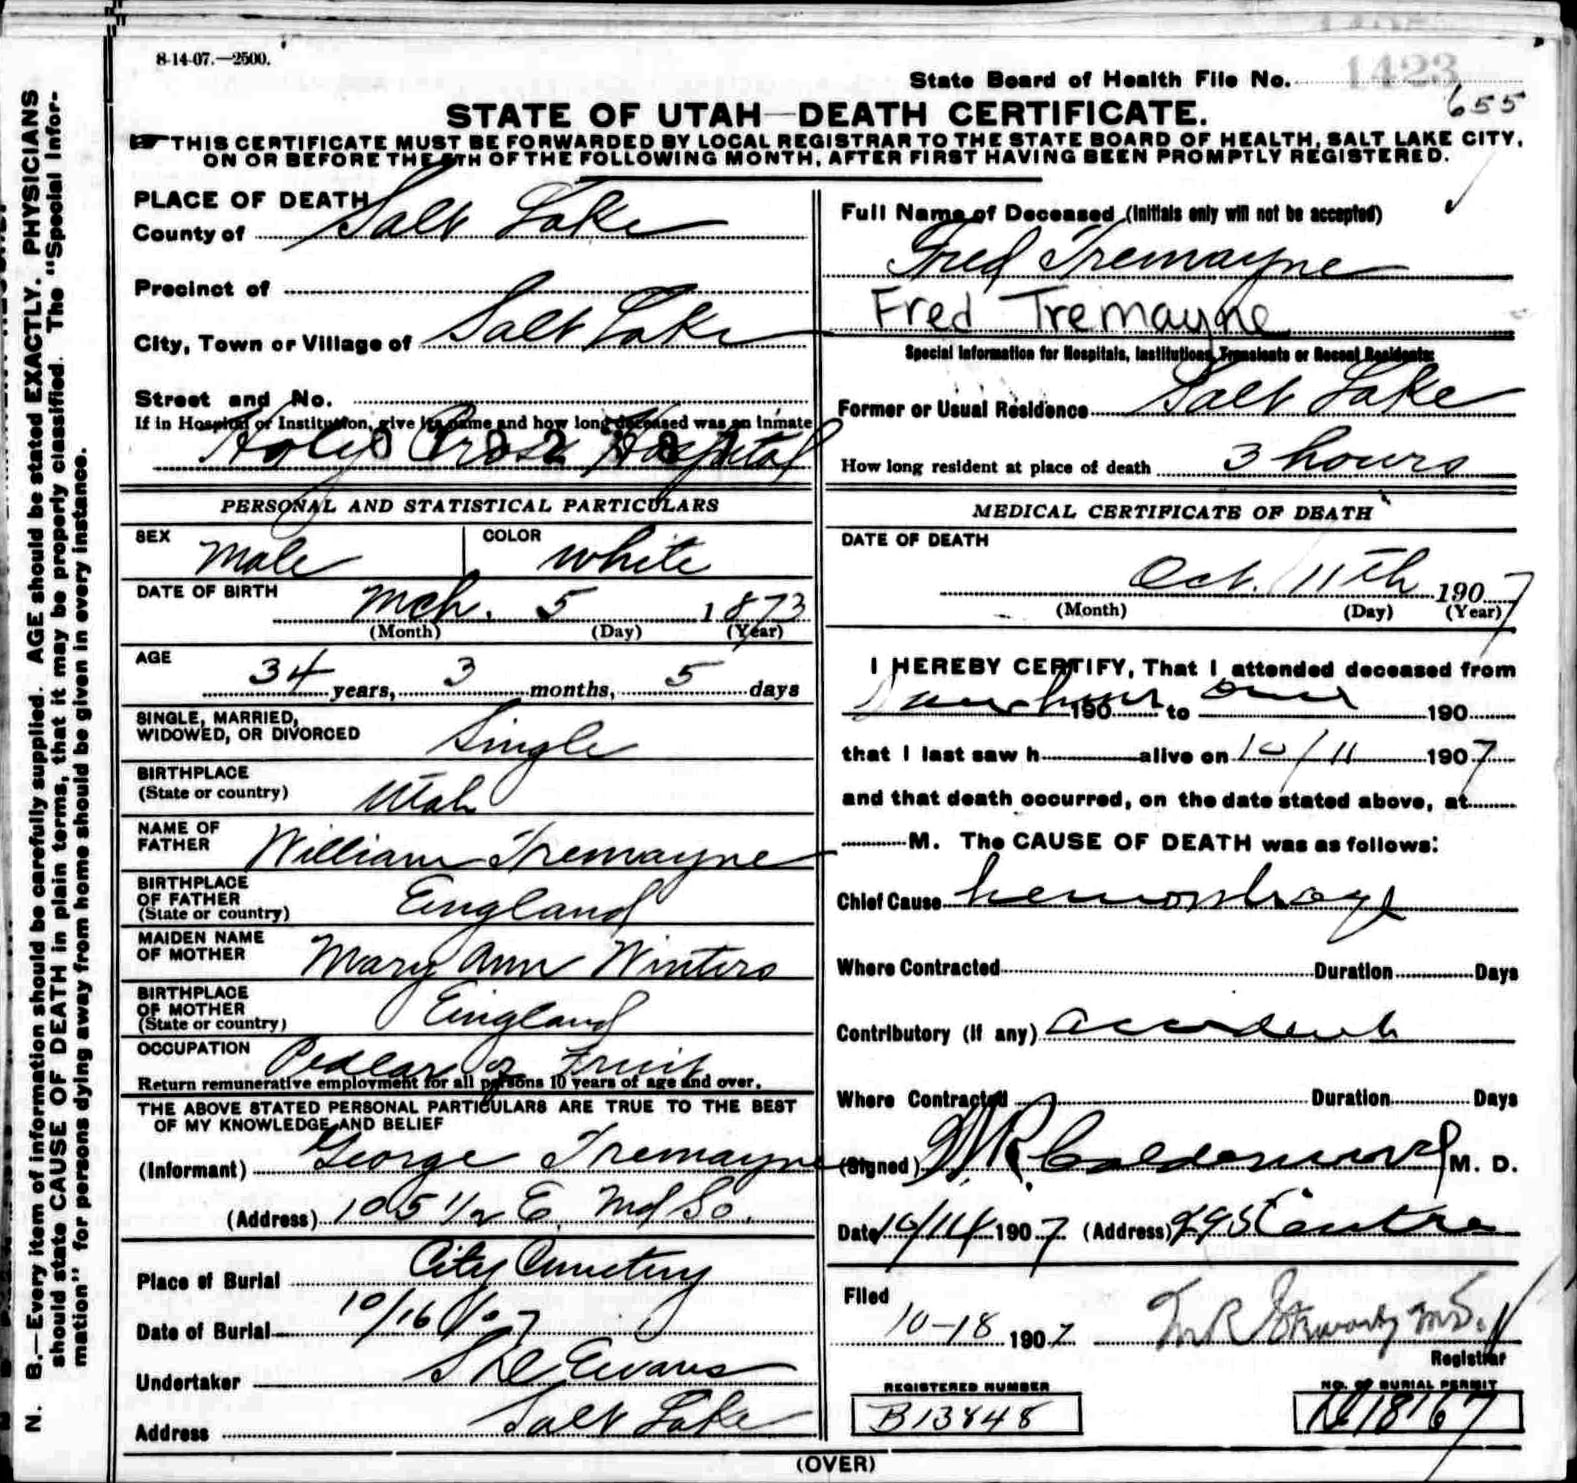 8-14-07.—2500.
State Board of Health File No. 1423
655
STATE OF UTAH—DEATH CERTIFICATE.
THIS CERTIFICATE MUST BE FORWARDED BY LOCAL REGISTRAR TO THE STATE BOARD OF HEALTH, SALT LAKE CITY,
ON OR BEFORE THE 5TH OF THE FOLLOWING MONTH, AFTER FIRST HAVING BEEN PROMPTLY REGISTERED.
N. B.—Every item of information should be carefully supplied. AGE should be stated EXACTLY. PHYSICIANS
should state CAUSE OF DEATH in plain terms, that it may be properly classified. The "Special Infor-
mation" for persons dying away from home should be given in every instance.
PLACE OF DEATH
County of Salt Lake
Precinct of
City, Town or Village of Salt Lake
Street and No.
If in Hospital or Institution, give its name and how long deceased was an inmate
Holy Cross Hospital
PERSONAL AND STATISTICAL PARTICULARS
SEX Male COLOR White
DATE OF BIRTH Mch. 5 1873
(Month) (Day) (Year)
AGE
34 years, 3 months, 5 days
SINGLE, MARRIED,
WIDOWED, OR DIVORCED Single
BIRTHPLACE
(State or country) Utah
NAME OF
FATHER William Tremayne
BIRTHPLACE
OF FATHER
(State or country) England
MAIDEN NAME
OF MOTHER Mary Ann Winters
BIRTHPLACE
OF MOTHER
(State or country) England
OCCUPATION Pedlar of Fruit
Return remunerative employment for all persons 10 years of age and over.
THE ABOVE STATED PERSONAL PARTICULARS ARE TRUE TO THE BEST
OF MY KNOWLEDGE AND BELIEF
(Informant) George Tremayne
(Address) 105 1/2 E. So.
Place of Burial City Cemetery
Date of Burial 10/16/07
Undertaker Evans
Address Salt Lake
Full Name of Deceased (Initials only will not be accepted)
Fred Tremayne
Fred Tremayne
Special Information for Hospitals, Institutions, Transients or Recent Residents:
Former or Usual Residence Salt Lake
How long resident at place of death 3 hours
MEDICAL CERTIFICATE OF DEATH
DATE OF DEATH
Oct. 11th 1907
(Month) (Day) (Year)
I HEREBY CERTIFY, That I attended deceased from
190 to 190
that I last saw h alive on 10/11 1907
and that death occurred, on the date stated above, at
M. The CAUSE OF DEATH was as follows:
Chief Cause hemorrhage
Where Contracted Duration Days
Contributory (if any) accident
Where Contracted Duration Days
(Signed) M. D.
Date 10/14 1907 (Address)
Filed
10-18 1907
Registrar
REGISTERED NUMBER
B13848
NO. OF BURIAL PERMIT
18167
(OVER)